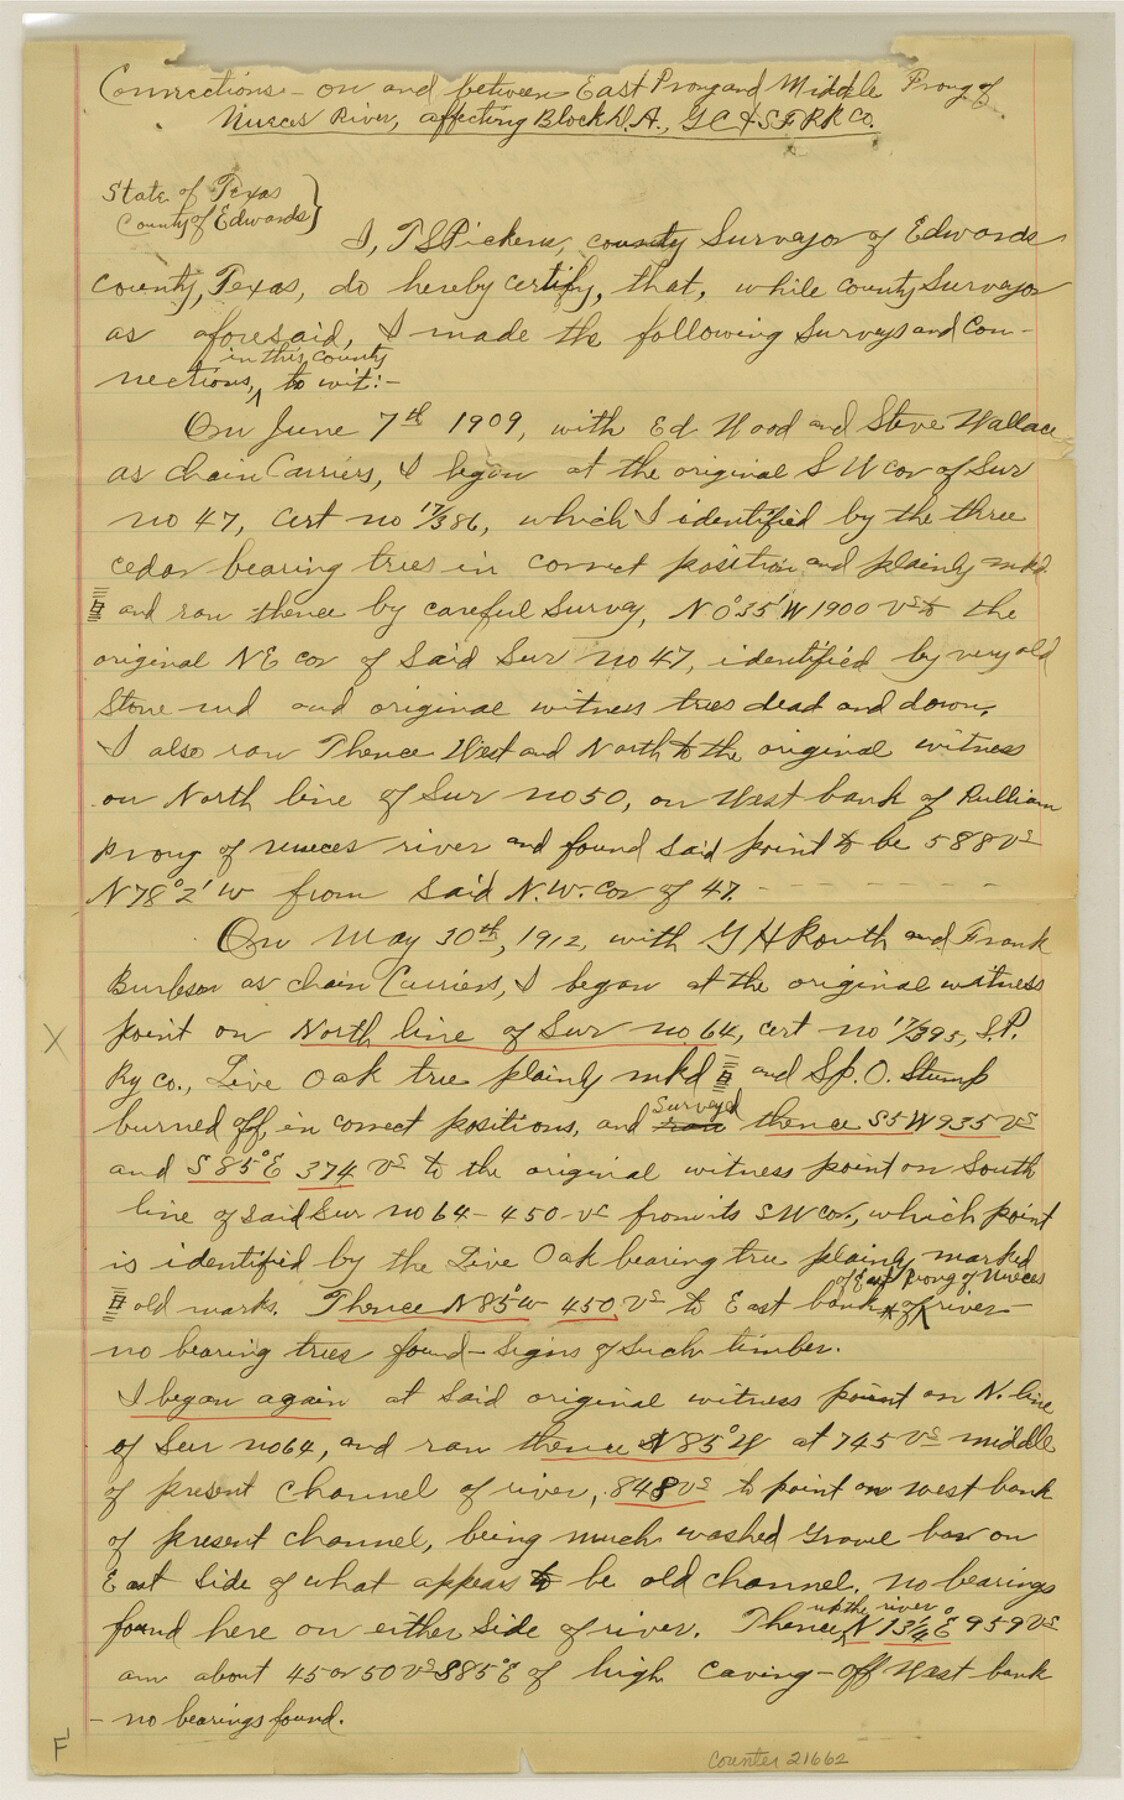 Connections - on and between East Prong and Middle Prong of
Nueces River, affecting Block D.A., G C & S F RR Co.
State of Texas }
County of Edwards }
I, T S Pickens, county Surveyor of Edwards
County, Texas, do hereby certify, that, while county Surveyor
as aforesaid, I made the following Surveys and Con-
in this county
nections, ^ to wit:-
On June 7th 1909, with Ed Wood and Steve Wallace
as chain Carriers, I began at the original S W cor of Sur
no 47, Cert no 17/386, which I identified by the three
cedar bearing trees in correct position and plainly mkd
and ran thence by careful Survey, N 0° 35' W 1900 vs to the
original N E cor of Said Sur no 47, identified by very old
Stone md and original witness trees dead and down.
I also ran Thence West and North to the original witness
on North line of Sur no 50, on West bank of Pulliam
prong of nueces river and found said point to be 588 vs
N 78° 2' W from said N.W. Cor of 47. - - - - - - -
On May 30th, 1912, with G H Routh and Frank
Burleson as chain Carriers, I began at the original witness
X point on North line of Sur no. 64, cert no 17/395, S.P.
Ry Co., Live Oak tree plainly mkd and Sp. O. Stump
Surveyed
burned off, in correct positions, and ran thence S 5 W 935 vs
and S 85° E 374 vs to the original witness point on South
line of said Sur no 64 - 450 - vs from its S W cor., which point
is identified by the Live Oak bearing tree plainly marked
of East prong of Nueces
old marks. Thence N 85° W 450 vs to East bank of river -
no bearing trees found - Signs of such timber.
I began again at said original witness point on N. line
of Sur no 64, and ran thence N 85° W at 745 vs middle
of present channel of river, 848 vs to point on west bank
of present channel, being much washed gravel bar on
East Side of what appears to be old channel. no bearings
up the river
found here on either side of river. Thence ^ N 13 1/4° E 959 vs
am about 45 or 50 vs S 85° E of high caving-off West bank
- no bearings found.
F
Counter 21662